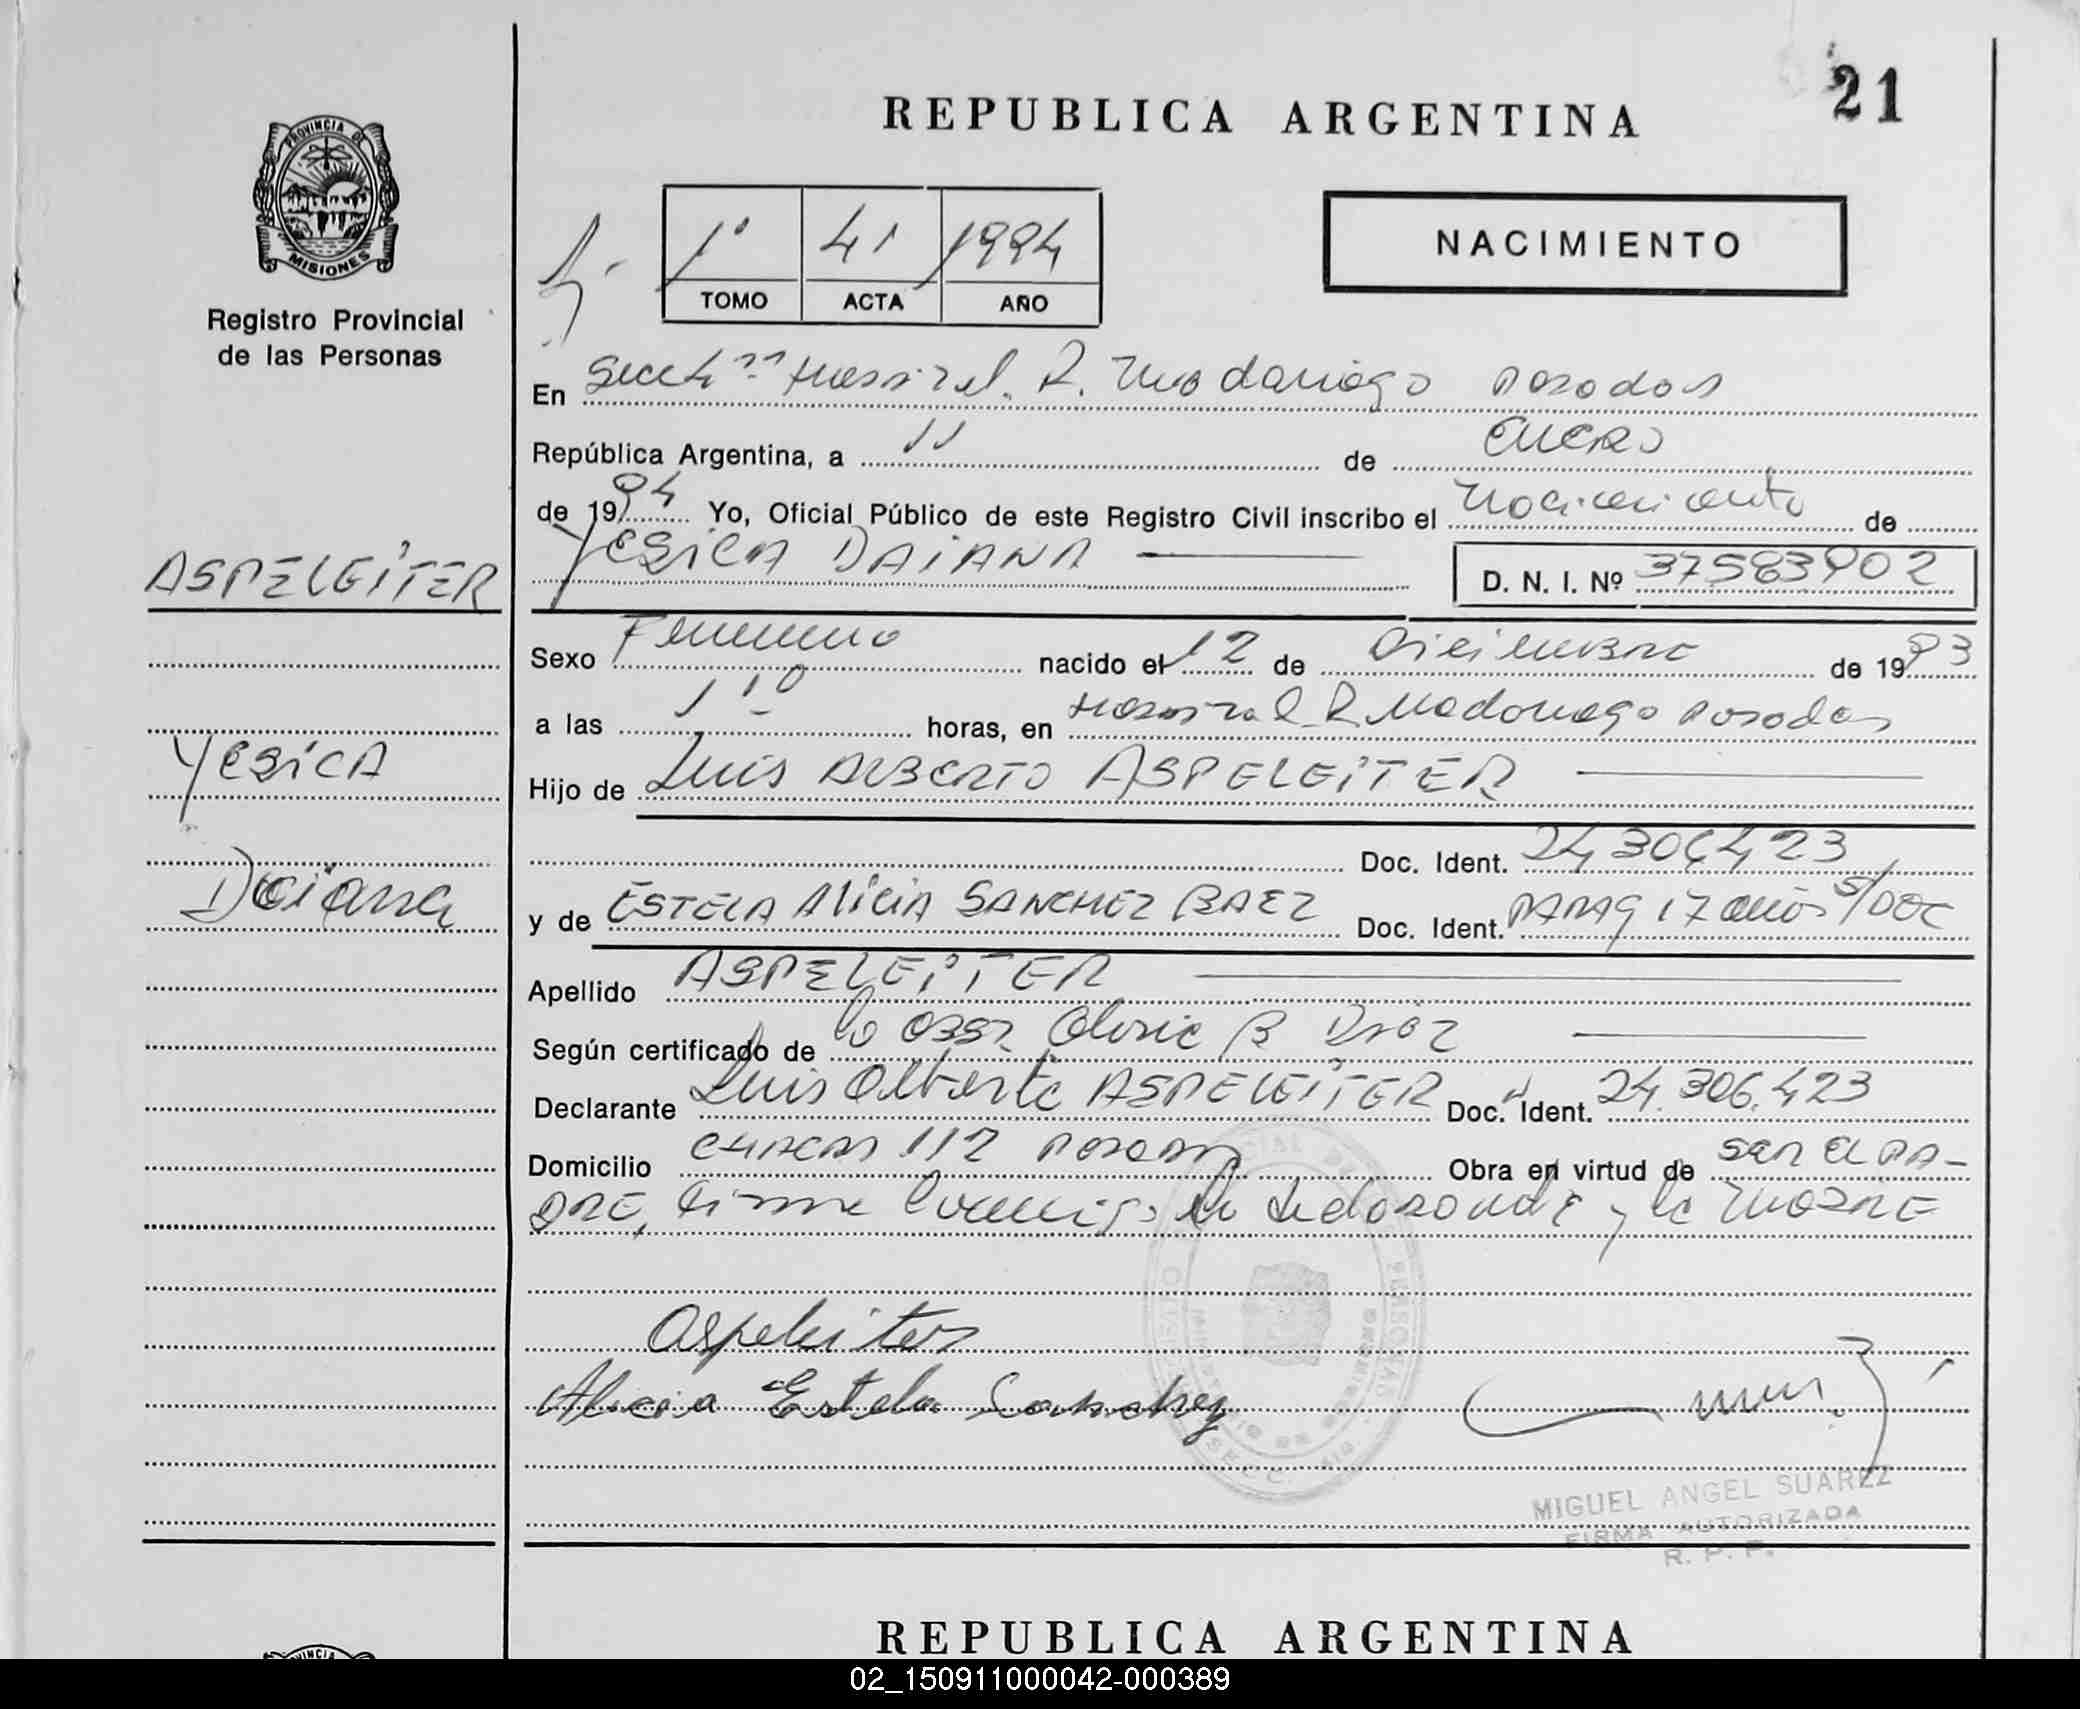 21
REPUBLICA ARGENTINA
PROVINCIA DE
MISIONES
Registro Provincial
de las Personas
1º 41 1994
TOMO ACTA AÑO
NACIMIENTO
En Hospital R. Madariaga Posadas
República Argentina, a 11 de ENERO
de 1994 Yo, Oficial Público de este Registro Civil inscribo el Nacimiento de
YESICA DAIANA
D. N. I. Nº 37583902
ASPELEITER
YESICA
Daiana
Sexo Femenino nacido el 12 de Diciembre de 1993
a las 1 10 horas, en Hospital R Madariaga Posadas
Hijo de Luis ALBERTO ASPELEITER
Doc. Ident. 24.306.423
y de ESTELA ALICIA SANCHEZ BAEZ Doc. Ident. PARAG 17 años S/DOC
Apellido ASPELEITER
Según certificado de la OBST
Declarante Luis Alberto ASPELEITER Doc. Ident. 24.306.423
Domicilio CHACAS 112 POSADAS Obra en virtud de SER EL PA-
DRE, Firma conmigo el declarante y la MADRE
Aspeleiter
Alicia Estela Sanchez
MIGUEL ANGEL SUAREZ
FIRMA AUTORIZADA
R. P. P.
REPUBLICA ARGENTINA
02_150911000042-000389